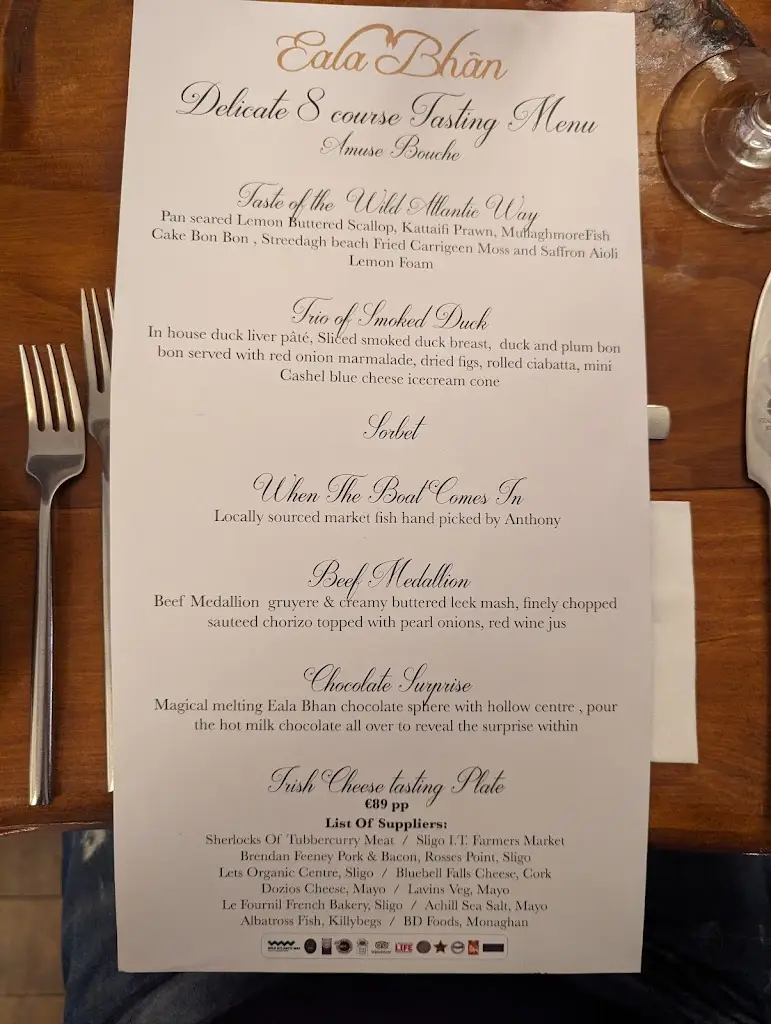 Eala Bhân
Delicate 8 course Tasting Menu
Amuse Bouche
Taste of the Wild Atlantic Way
Pan seared Lemon Buttered Scallop, Kattaifi Prawn, MullaghmoreFish
Cake Bon Bon , Streedagh beach Fried Carrigeen Moss and Saffron Aioli
Lemon Foam
Trio of Smoked Duck
In house duck liver pâté, Sliced smoked duck breast, duck and plum bon
bon served with red onion marmalade, dried figs, rolled ciabatta, mini
Cashel blue cheese icecream cone
Sorbet
When The Boat Comes In
Locally sourced market fish hand picked by Anthony
Beef Medallion
Beef Medallion gruyere & creamy buttered leek mash, finely chopped
sauteed chorizo topped with pearl onions, red wine jus
Chocolate Surprise
Magical melting Eala Bhan chocolate sphere with hollow centre , pour
the hot milk chocolate all over to reveal the surprise within
Irish Cheese tasting Plate
€89 pp
List Of Suppliers:
Sherlocks Of Tubbercurry Meat / Sligo I.T. Farmers Market
Brendan Feeney Pork & Bacon, Rosses Point, Sligo
Lets Organic Centre, Sligo / Bluebell Falls Cheese, Cork
Dozios Cheese, Mayo / Lavins Veg, Mayo
Le Fournil French Bakery, Sligo / Achill Sea Salt, Mayo
Albatross Fish, Killybegs / BD Foods, Monaghan
LIFE